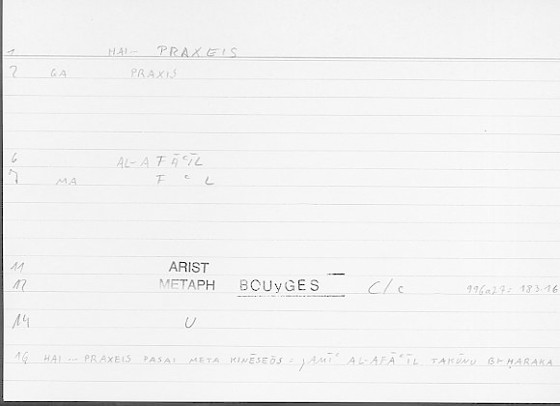 1 HAI — PRAXEIS
2 GA PRAXIS
6 AL-AFĀʿĪL
7 MA F ʿ L
11 ARIST
12 METAPH BOUyGES C/c 996a27: 183.16
14 U
19 HAI — PRAXEIS PASAI META KINĒSEŌS = ǦAMĪʿ AL-AFĀʿĪL TAKŪNU BI-ḤARAKA